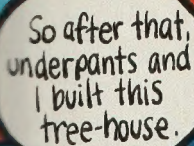 So after that,
underpants and
I built this
tree-house.